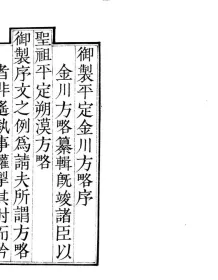 御製平定金川方略序
金川方略纂輯既竣諸臣以
聖祖平定朔漠方略
御製序文之例爲請夫所謂方略
者非遙執事權掣其肘而令